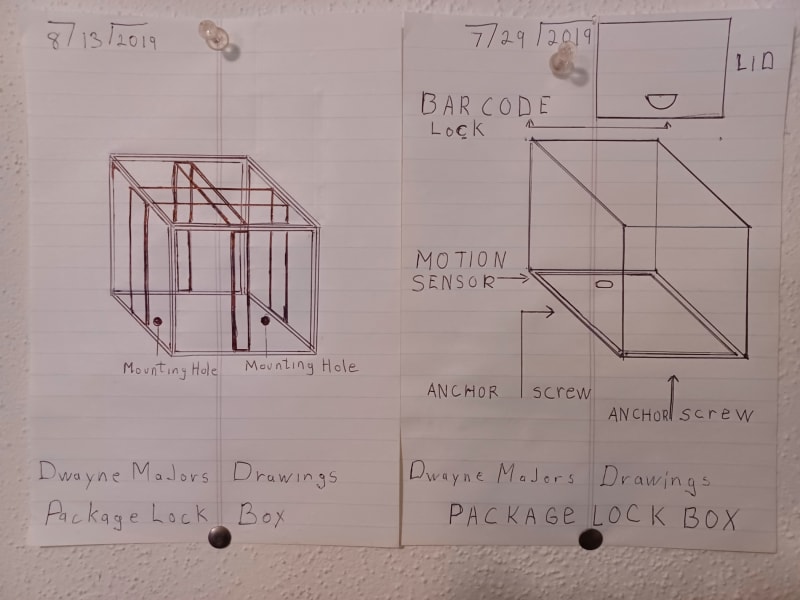 8/13/2019
Mounting Hole
Mounting Hole
Dwayne Majors Drawings
Package Lock Box
7/29/2019
LID
BARCODE
LOCK
MOTION
SENSOR
ANCHOR screw
ANCHOR screw
Dwayne Majors Drawings
PACKAGe LOCK BOX